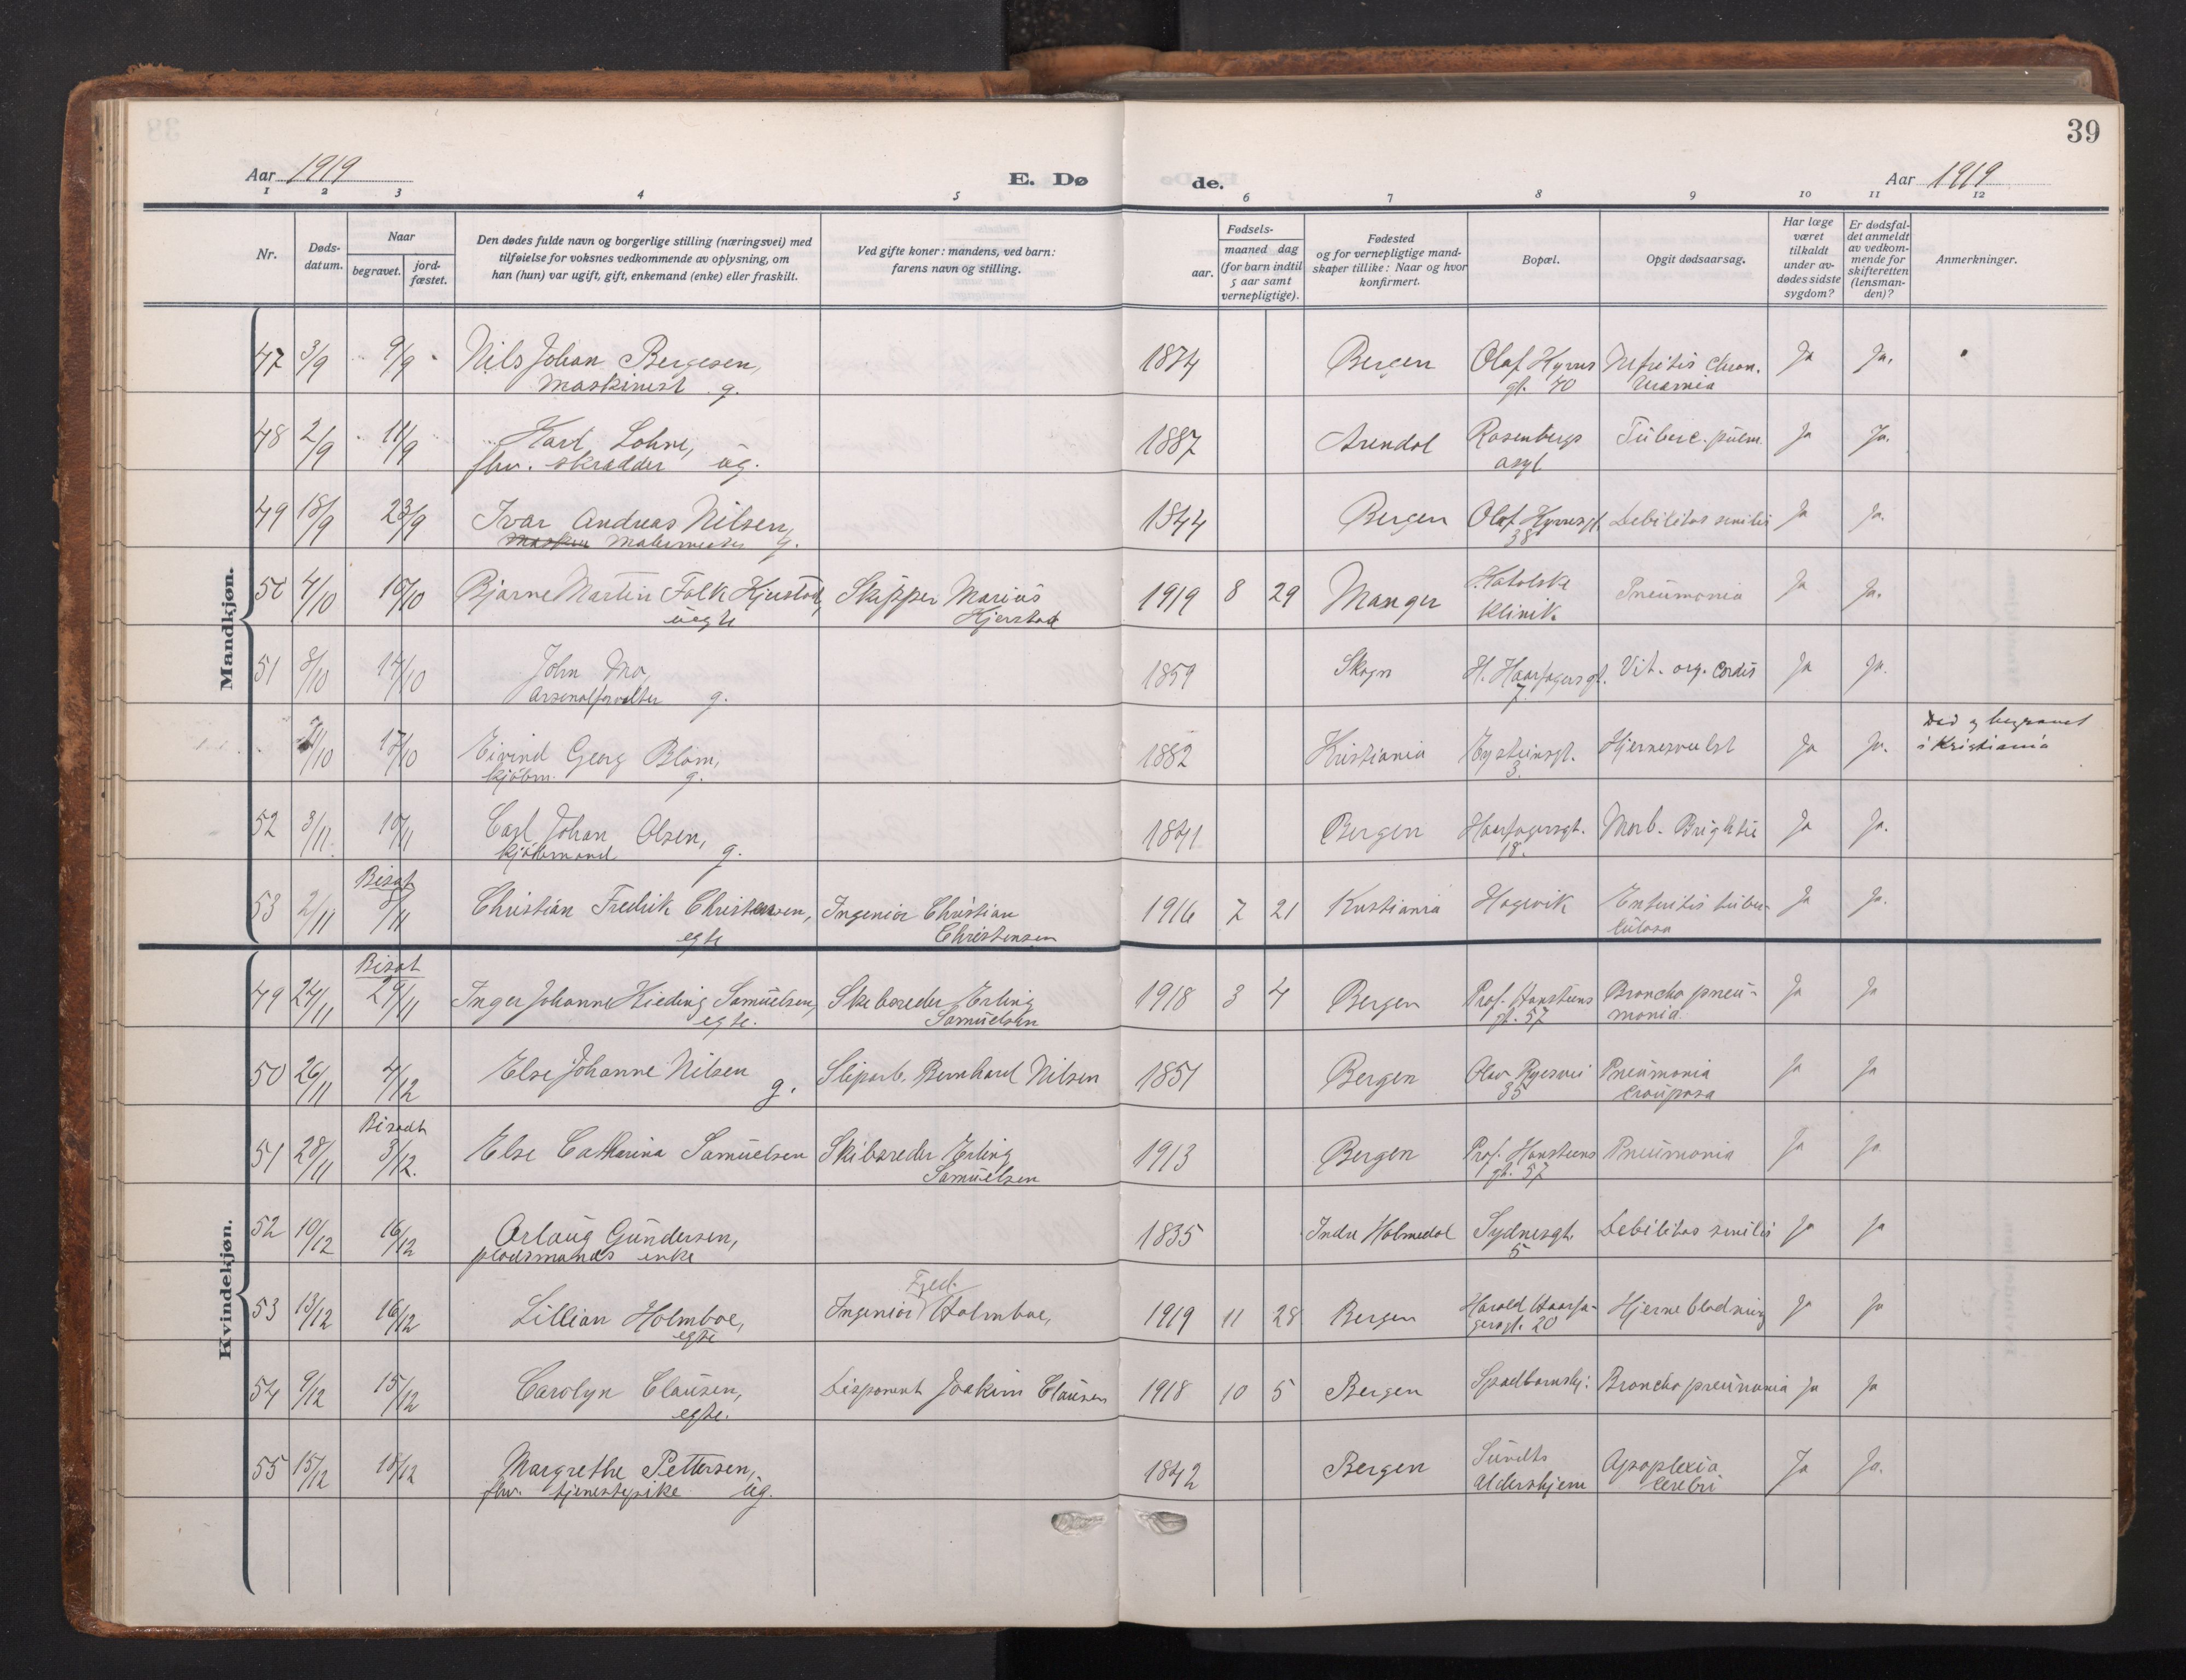 39
Aar 1919
E. Dø
de.
Aar 1919
1 2 3 4 5 6 7 8 9 10 11 12
Nr.
Døds-
datum.
Naar
begravet.
jord-
fæstet.
Den dødes fulde navn og borgerlige stilling (næringsvei) med
tilføielse for voksnes vedkommende av oplysning, om
han (hun) var ugift, gift, enkemand (enke) eller fraskilt.
Ved gifte koner: mandens, ved barn:
farens navn og stilling.
Fødsels-
aar.
maaned dag
(for barn indtil
5 aar samt
vernepligtige).
Fødested
og for vernepligtige mand-
skaper tillike: Naar og hvor
konfirmert.
Bopæl.
Opgit dødsaarsag.
Har læge
været
tilkaldt
under av-
dødes sidste
sygdom?
Er dødsfal-
det anmeldt
av vedkom-
mende for
skifteretten
(lensman-
den)?
Anmerkninger.
Mandkjøn.
47 3/9 9/9 Nils Johan Bergesen, 1874 Bergen Olaf Kyrres Nefritis chron. Ja Ja.
Maskinist g. gt. 40 Uræmia
48 2/9 11/9 Karl Lohne, 1887 Arendal Rosenbergs Tuberc. pulm. Ja Ja.
fhv. skrædder ug. asyl
49 18/9 23/9 Ivar Andreas Nilsen, 1844 Bergen Olaf Kyrresgt. Debilitas senilis Ja Ja.
Malermester g. 38
50 4/10 10/10 Bjarne Martin Falk Hjerstad, Skipper Marius 1919 8 29 Manger Katolske Pneumonia Ja Ja.
uegte Hjerstad klinik.
51 8/10 14/10 John Mo, 1859 Skogn H. Haarfagersgt. Vit. org. cordis Ja Ja.
Arsenalforvalter g. 7.
7/10 17/10 Eivind Georg Blom, 1882 Kristiania Eysteinsgt. Hjernesvulst Ja Ja. Død og begravet
kjøbm. g. 3. i Kristiania
52 3/11 10/11 Carl Johan Olsen, 1841 Bergen Haarfagersgt. Morb. Brightii Ja Ja.
kjøbmand g. 18.
Bisat
53 2/11 8/11 Christian Fredrik Christensen, Ingeniør Christian 1916 7 21 Kristiania Hagevik Enteritis tuber- Ja Ja.
egte Christensen culosa
Kvindekjøn.
Bisat
49 24/11 29/11 Inger Johanne Hieding Samuelsen, Skibsreder Erling 1918 3 4 Bergen Prof. Hansteens Broncho pneu- Ja Ja
egte. Samuelsen gt. 57 monia.
50 26/11 4/12 Else Johanne Nilsen Sliparb. Bernhard Nilsen 1851 Bergen Olav Ryesvei Pneumonia Ja Ja
g. 35 crouposa
Bisadt
51 28/11 3/12. Else Catharina Samuelsen Skibsreder Erling 1913 Bergen Prof. Hansteens Pneumonia Ja Ja
Samuelsen gt. 57
52 10/12 16/12 Orlaug Gundersen, 1835 Indre Holmedal Sydnesgt. Debilitas senilis Ja Ja
pladsmands enke 5
Fred.
53 13/12 16/12 Lillian Holmboe, Ingeniør Holmboe, 1919 11 28 Bergen Harald Haarfa- Hjerneblødning Ja Ja
egte gersgt. 20
54 9/12 15/12 Carolyn Clausen, Disponent Joakim Clausen 1918 10 5 Bergen Spædbarnshj: Broncho pneumonia Ja Ja
egte.
55 15/12 18/12 Margrethe Pettersen, 1842 Bergen Sundts Apoplexia Ja Ja.
fhv. tjenestepike ug. Aldershjem cerebri